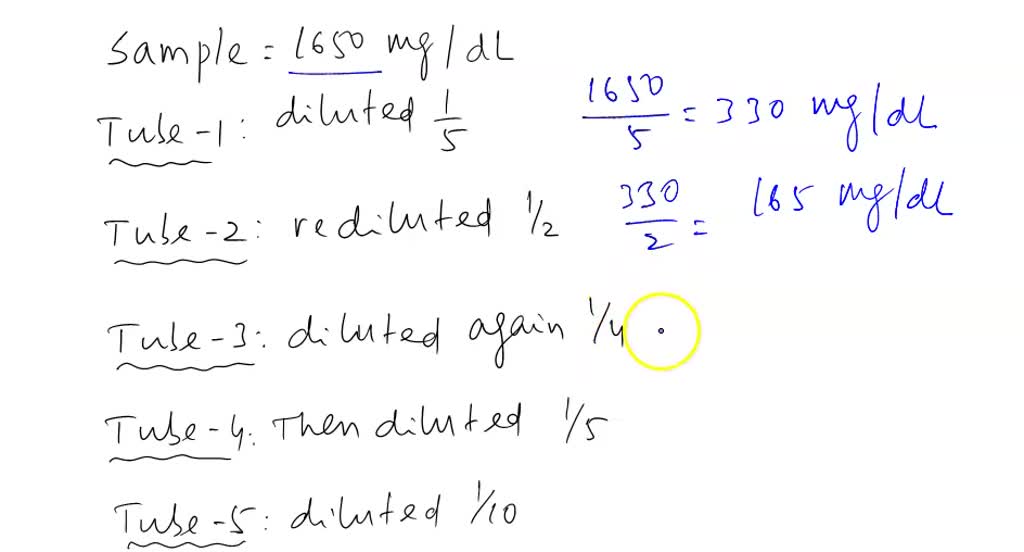 Sample = 1650 mg/dL
Tube-1: diluted 1/5 1650/5 = 330 mg/dL
Tube-2: rediluted 1/2 330/2 = 165 mg/dL
Tube-3: diluted again 1/4
Tube-4: Then diluted 1/5
Tube-5: diluted 1/10